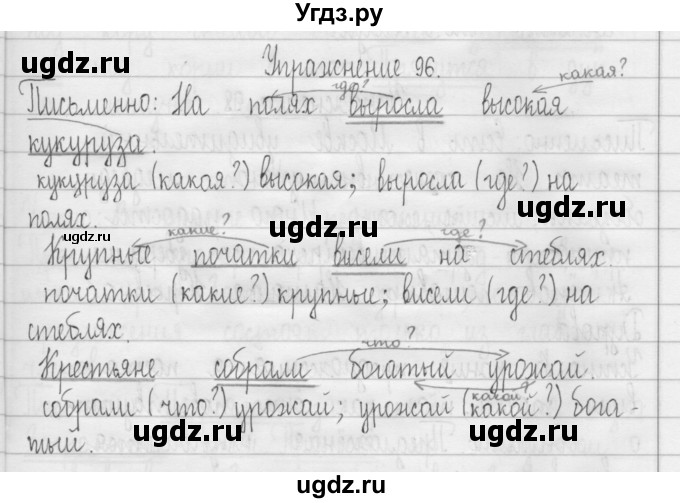 Угдз.ру
Упражнение 96.
какая?
где?
Письменно: На полях выросла высокая
кукуруза
кукуруза (какая?) высокая; выросла (где?) на
полях.
какие? где?
Крупные початки висели на стеблях.
початки (какие?) крупные; висели (где?) на
стеблях.
что?
Крестьяне собрали богатый урожай.
какой?
собрали (что?) урожай; урожай (какой?) бога-
тый.
ugdz.ru
ugdz.ru
ugdz.ru
ugdz.ru
ugdz.ru
ugdz.ru
ugdz.ru
ugdz.ru
ugdz.ru
ugdz.ru
ugdz.ru